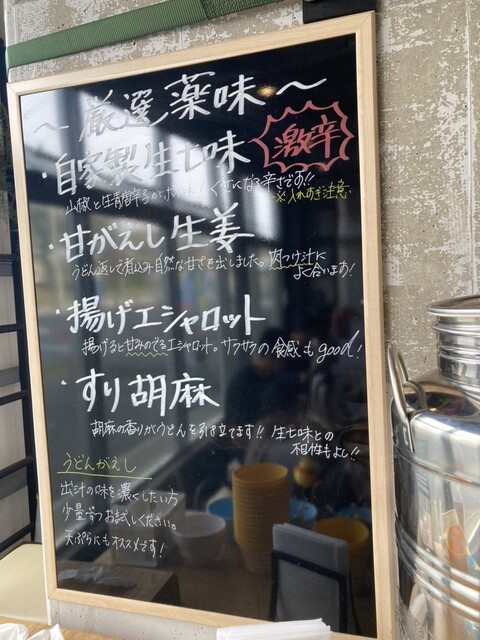 ～厳選薬味～
・自家製生七味
激辛
山椒と生青唐辛子がポイント！くせになる辛さです!!
※入れすぎ注意
・甘がえし生姜
うどん返しで煮込み自然な甘さを出しました。肉つけ汁に
よく合います!
・揚げエシャロット
揚げると甘みのでるエシャロット。サクサクの食感もgood!
・すり胡麻
胡麻の香りがうどんを引き立てます!! 生七味との
相性もよし!!
うどんがえし
出汁の味を濃くしたい方
少量ずつお試しください。
天ぷらにもオススメです!